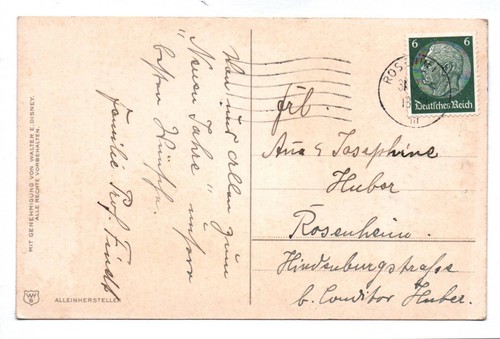 Von uns allen zum
"Neuen Jahre" unsere
besten Wünsche.
Familie Prof. Findt
Frl.
Ana & Josephine
Huber
Rosenheim.
Hindenburgstrasse
b. Conditor Huber.
6 6
Deutsches Reich
MIT GENEHMIGUNG VON WALTER E. DISNEY.
ALLE RECHTE VORBEHALTEN.
ALLEINHERSTELLER